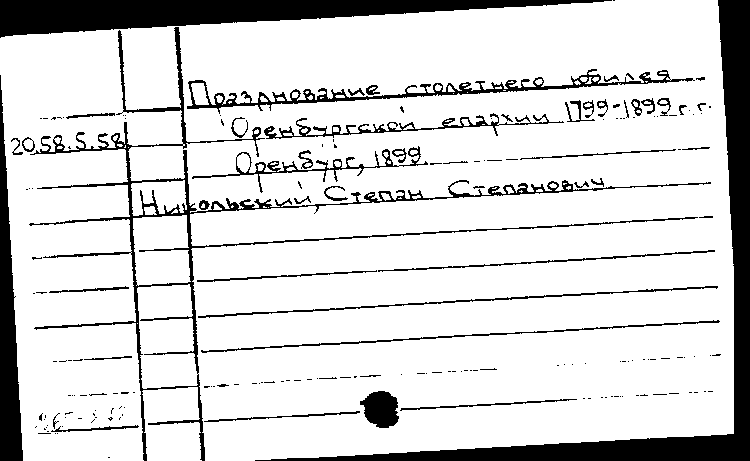 Празднование столетнего юбилея
20.58.5.58. Оренбургской епархии 1799-1899 г.г.
Оренбург, 1899.
Никольский, Степан Степанович.